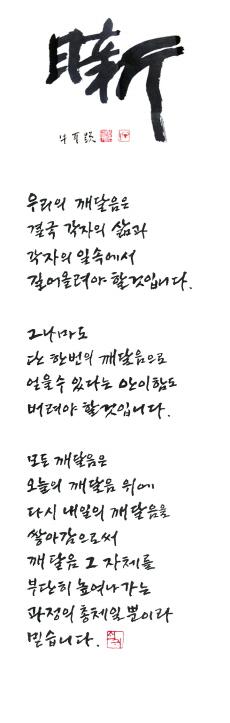 日新
우리의 깨달음은
결국 각자의 삶과
각자의 일속에서
길어올려야 할것입니다.
그나마도
단 한번의 깨달음으로
얻을수 있다는 안이함도
버려야 할것입니다.
모든 깨달음은
오늘의 깨달음 위에
다시 내일의 깨달음을
쌓아감으로써
깨달음 그 자체를
부단히 높여나가는
과정의 총체일뿐이라
믿습니다.